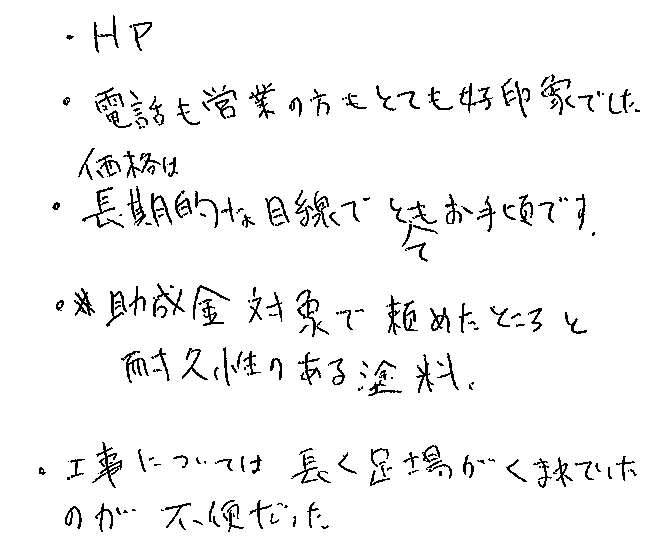 ・HP
・電話も営業の方もとても好印象でした
価格は
・長期的な目線でとてもお手頃です。
・助成金対象で頼めたところと
耐久性のある塗料。
・工事については長く足場がくまれていた
のが不便だった